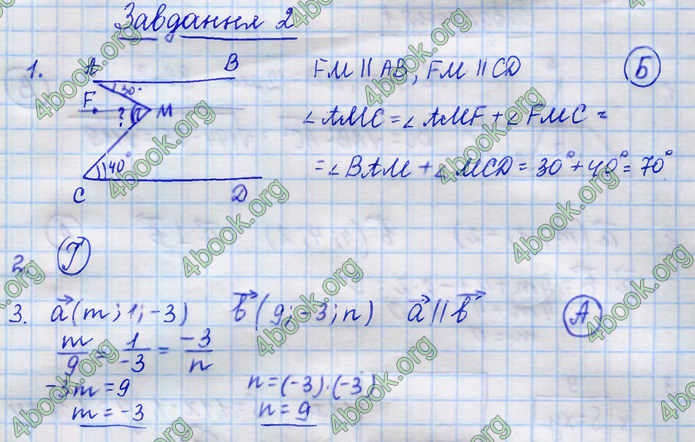 Завдання 2
1. A B 30° F M ? 40° C D
FM || AB, FM || CD Б
∠AMC = ∠AMF + ∠FMC =
= ∠BAM + ∠MCD = 30° + 40° = 70°
2. Г
3. a⃗(m; 1; -3) b⃗(9; -3; n) a⃗ || b⃗ А
m/9 = 1/-3 = -3/n
-3m = 9 n = (-3)·(-3)
m = -3 n = 9
4book.org